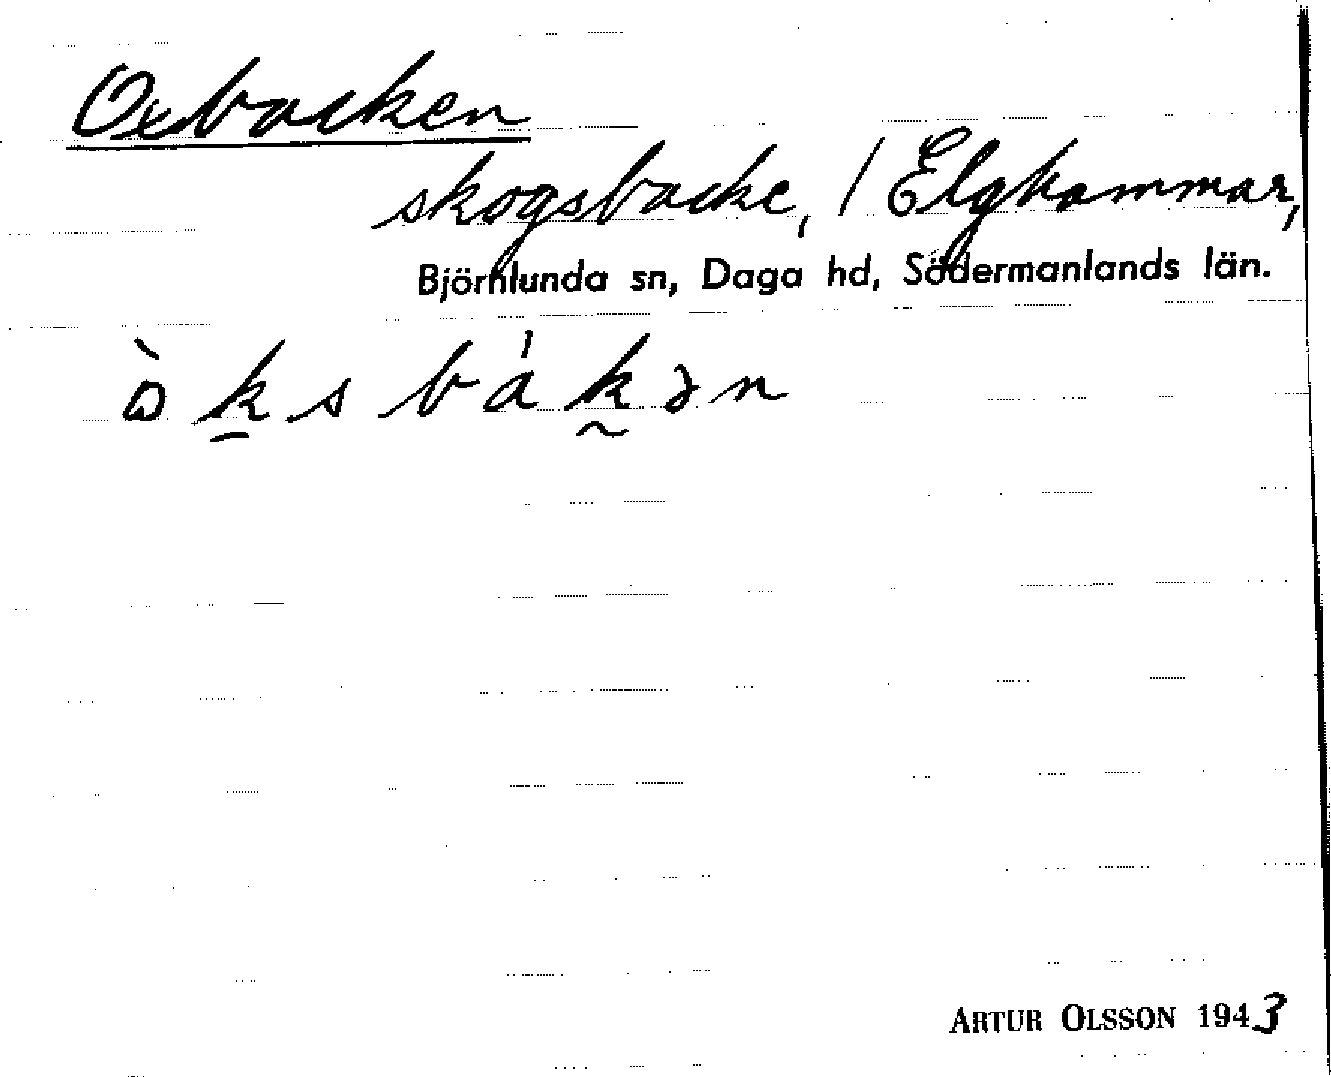 Oxbacken
skogsbacke, / Elghammar,
Björnlunda sn, Daga hd, Södermanlands län.
ò k s b á k ə n
ARTUR OLSSON 1943